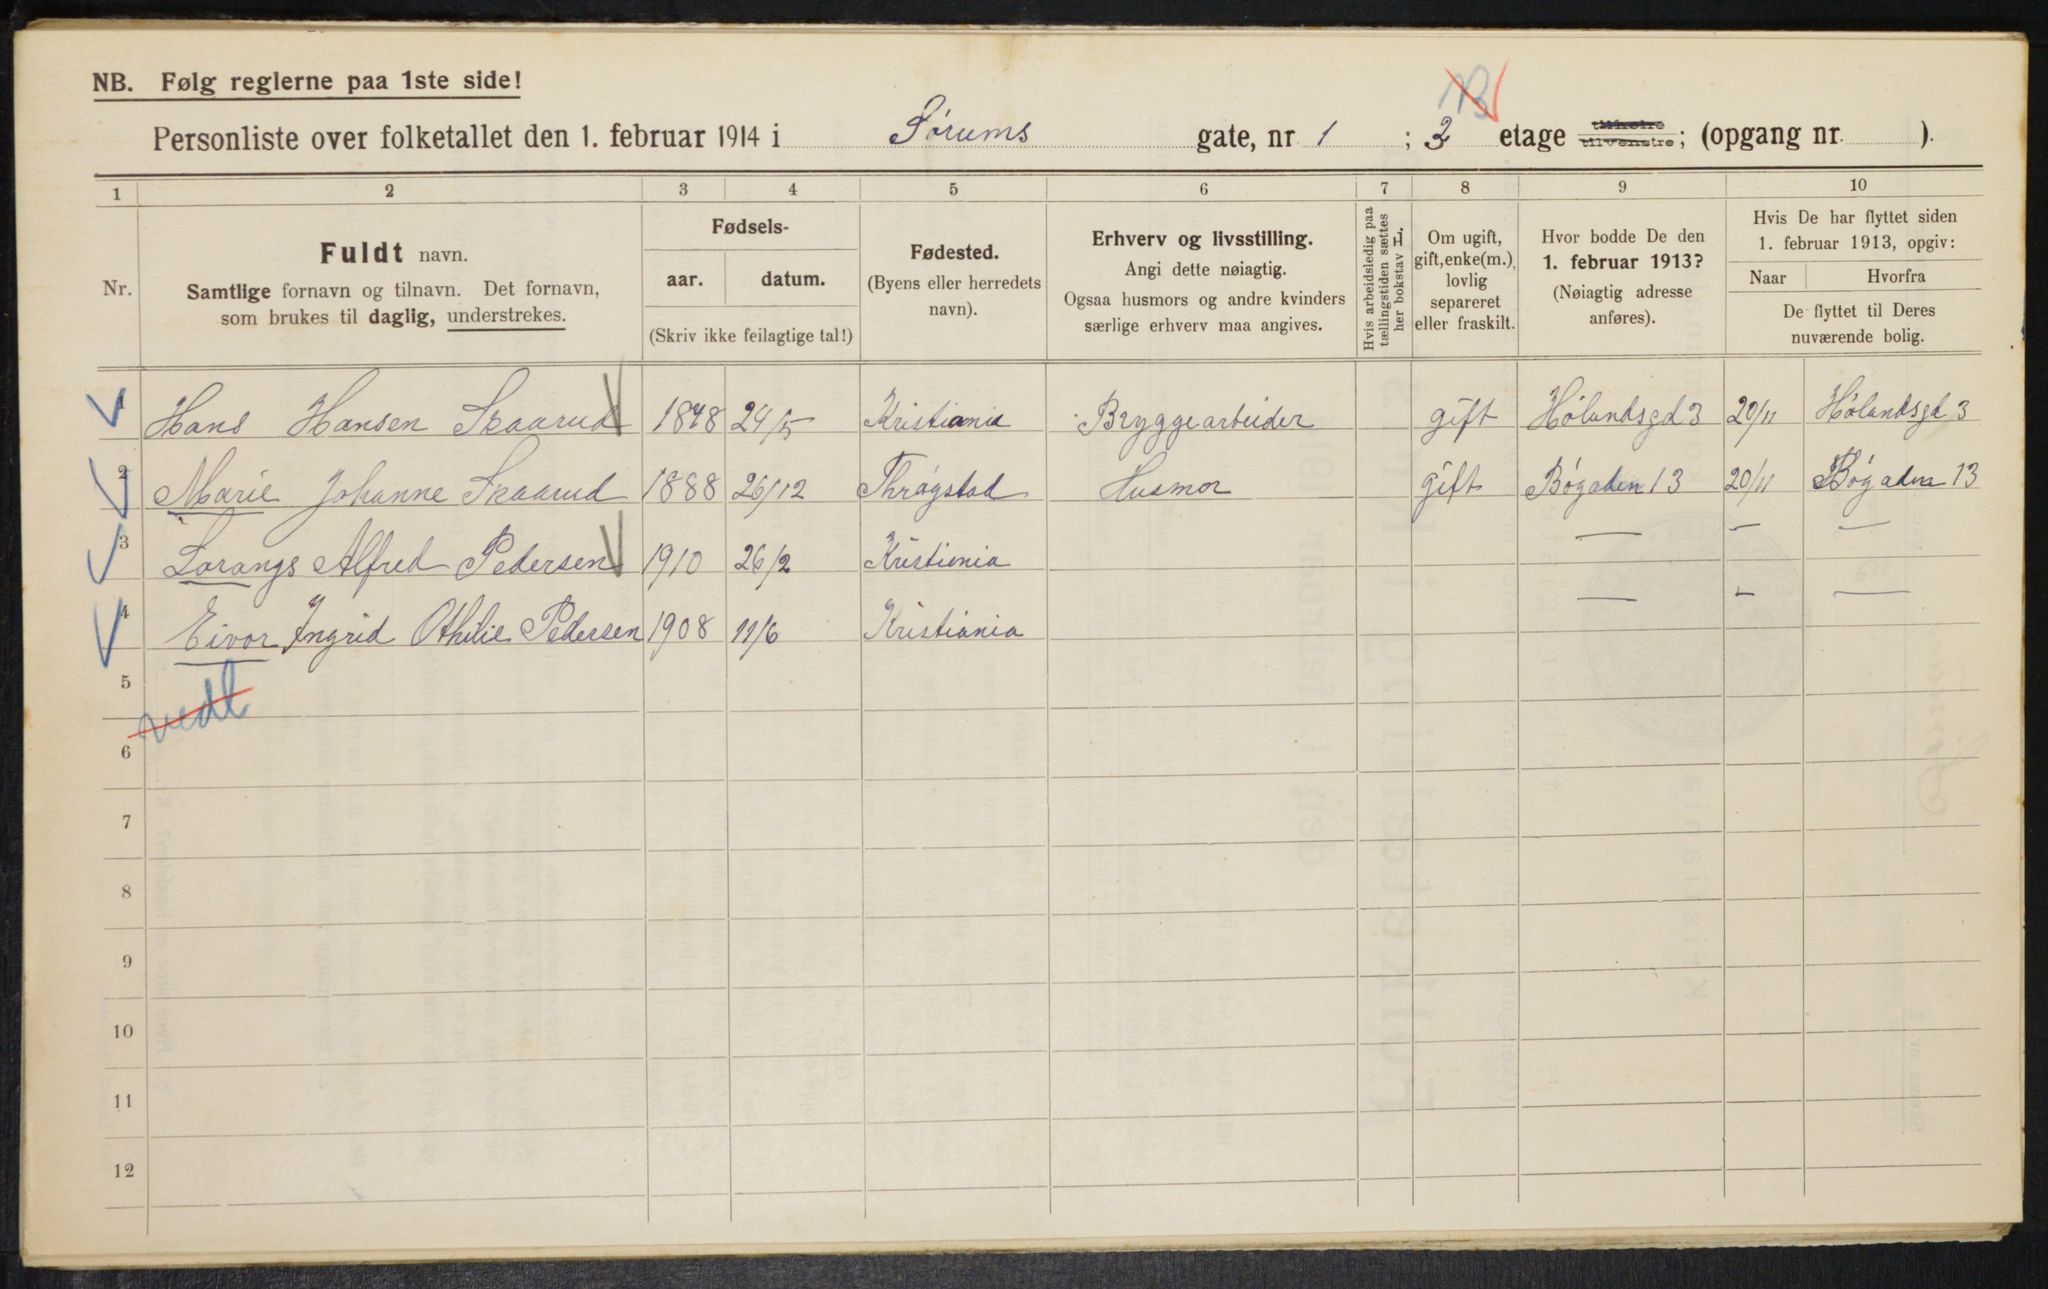 NB. Følg reglerne paa 1ste side!
Personliste over folketallet den 1. februar 1914 i Sørums gate, nr 1 ; 2 etage tilhøire tilvenstre; (opgang nr. ).
1 2 3 4 5 6 7 8 9 10
Nr.
Fuldt navn.
Samtlige fornavn og tilnavn. Det fornavn,
som brukes til daglig, understrekes.
Fødsels-
aar. datum.
(Skriv ikke feilagtige tal!)
Fødested.
(Byens eller herredets
navn).
Erhverv og livsstilling.
Angi dette nøiagtig.
Ogsaa husmors og andre kvinders
særlige erhverv maa angives.
Hvis arbeidsledig paa
tællingstiden sættes
her bokstav L.
Om ugift,
gift, enke(m.),
lovlig
separeret
eller fraskilt.
Hvor bodde De den
1. februar 1913?
(Nøiagtig adresse
anføres).
Hvis De har flyttet siden
1. februar 1913, opgiv:
Naar Hvorfra
De flyttet til Deres
nuværende bolig.
1 Hans Hansen Skaarud 1848 24/5 Kristiania Bryggearbeider gift Hølandsgd 3 20/11 Hølandsgd 3
2 Marie Johanne Skaarud 1888 26/12 Thrøgstad Husmor gift Bøgaden 13 20/11 Bøgaden 13
3 Lorangs Alfred Pedersen 1910 26/2 Kristiania — — —
4 Eivor Ingrid Othilie Pedersen 1908 11/6 Kristiania — — —
5
6
7
8
9
10
11
12